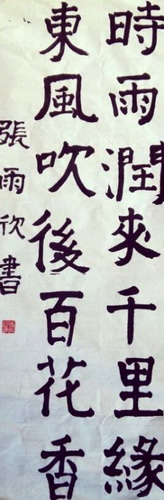 時雨潤來千里緣
東風吹後百花香
張雨欣書